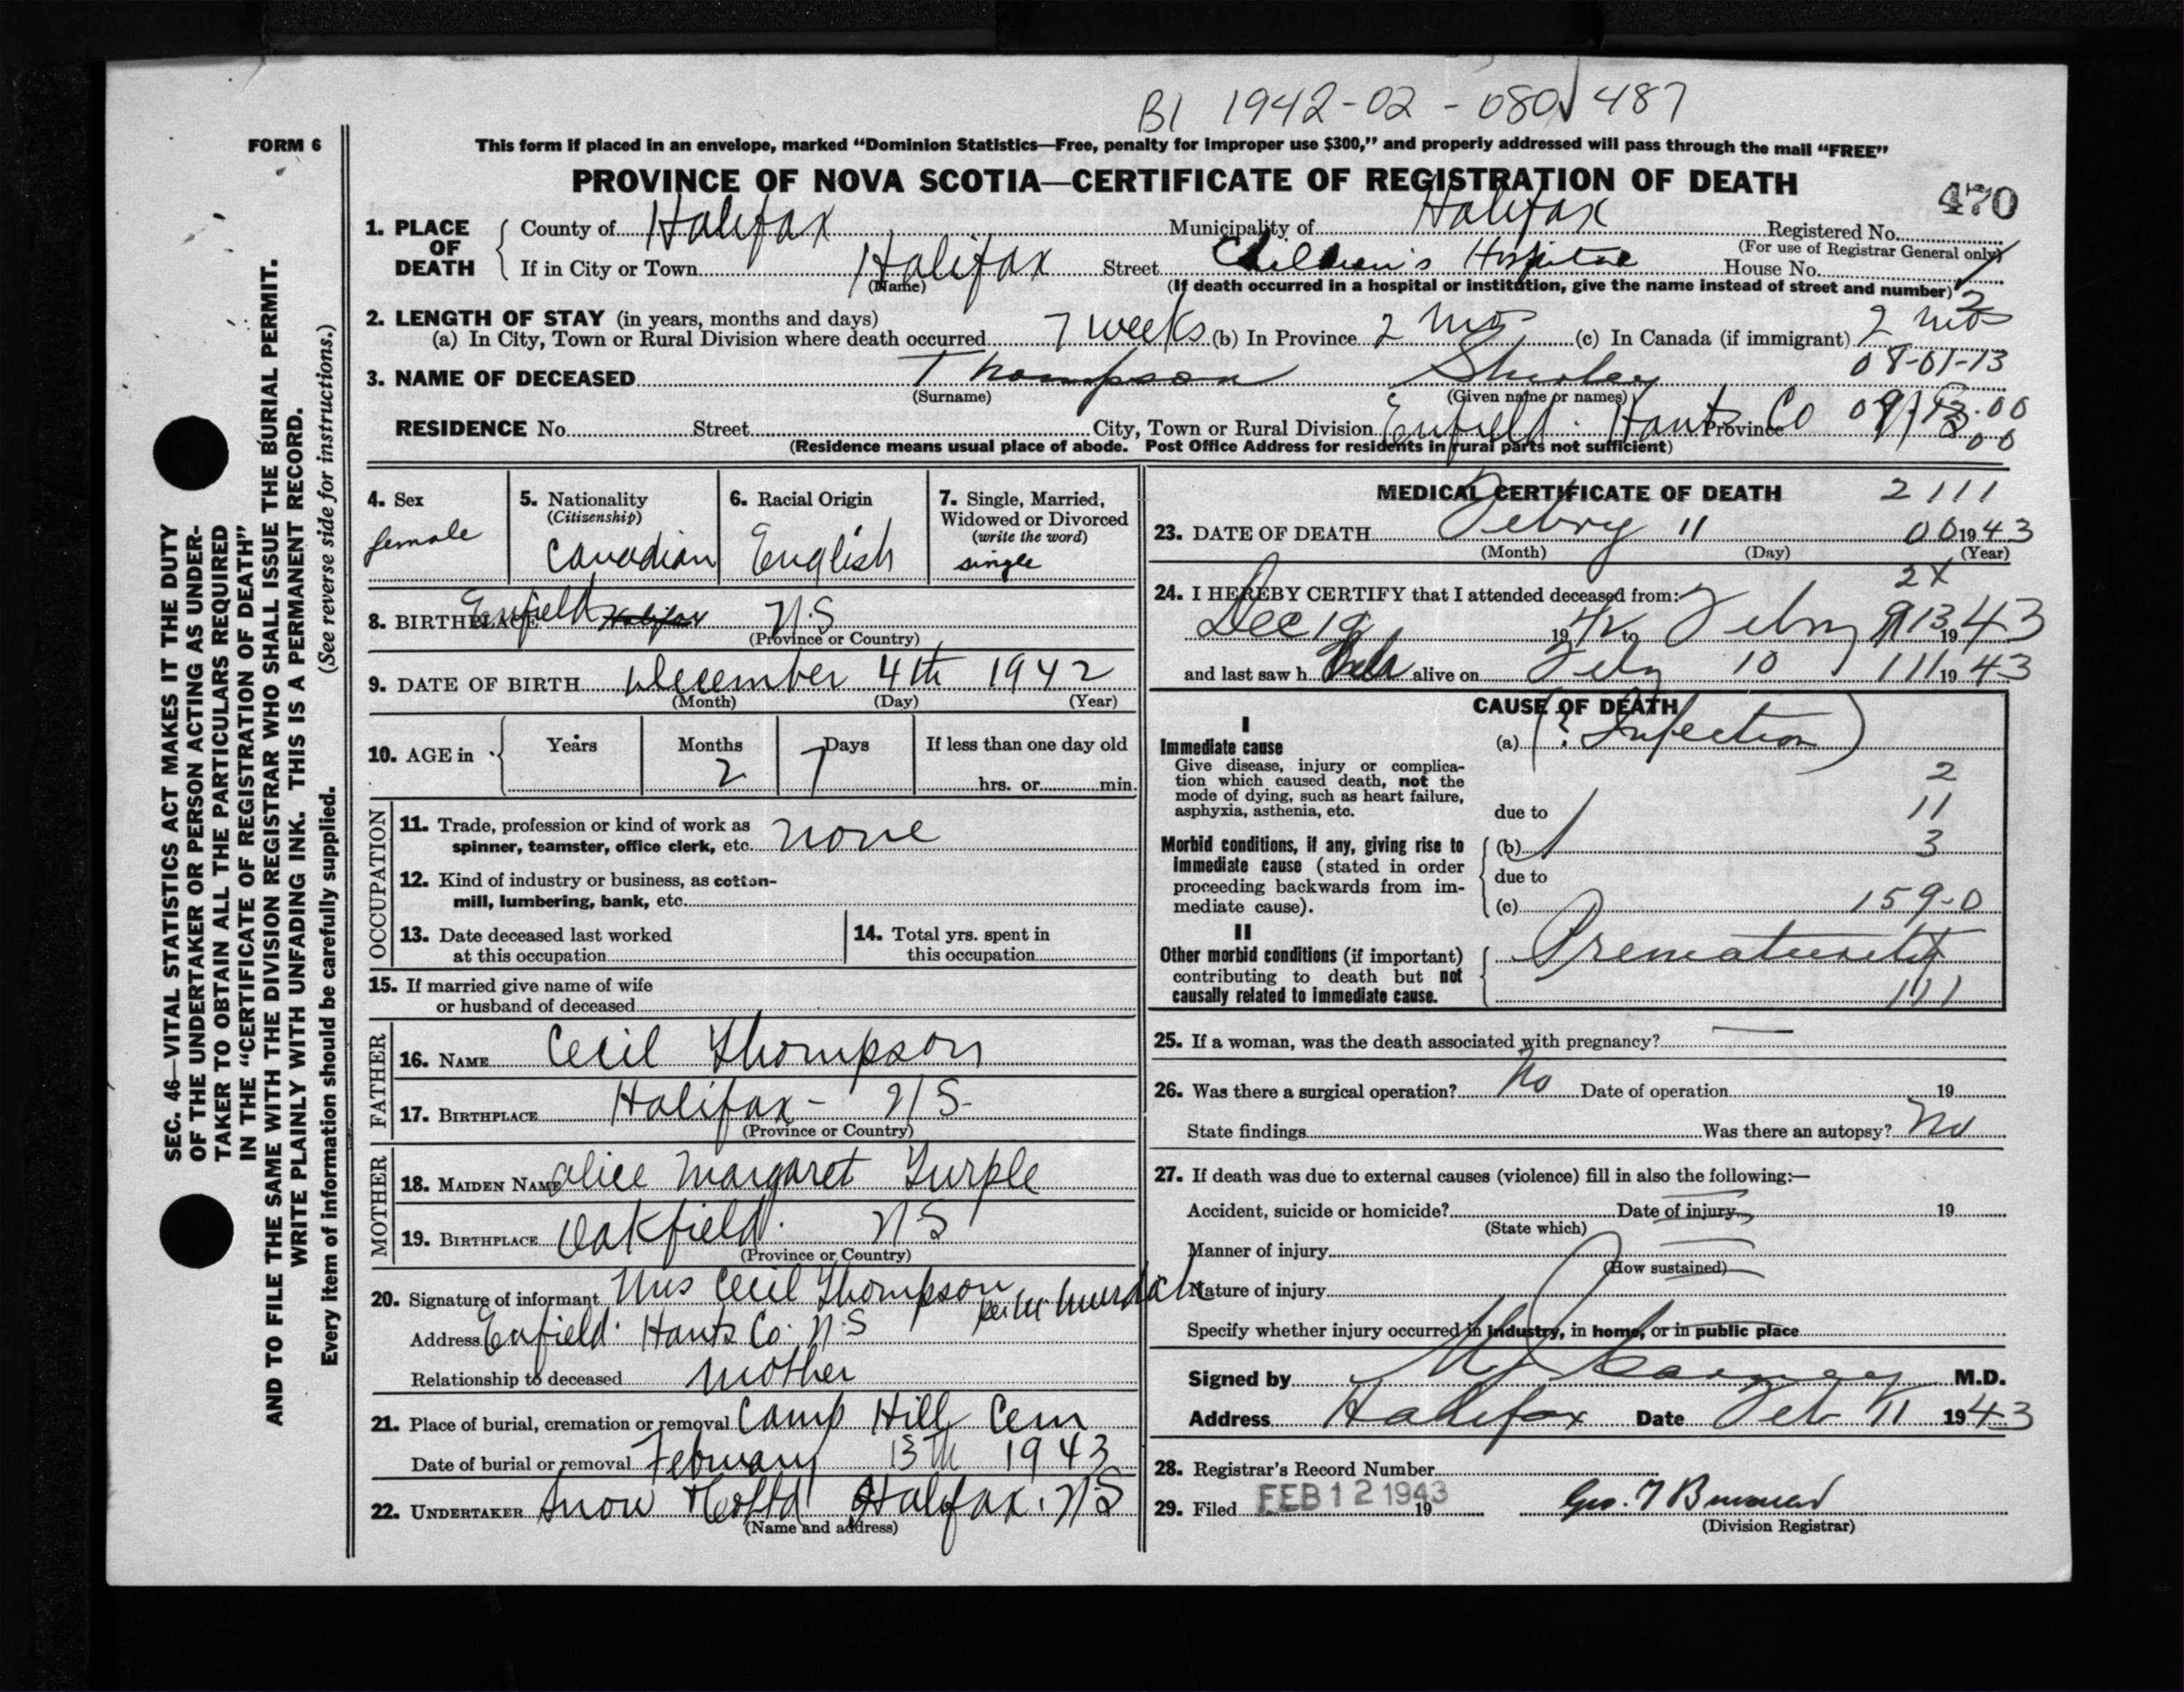 B1 1942-02-080487
FORM 6
This form if placed in an envelope, marked “Dominion Statistics—Free, penalty for improper use $300,” and properly addressed will pass through the mail “FREE”
PROVINCE OF NOVA SCOTIA—CERTIFICATE OF REGISTRATION OF DEATH
470
1. PLACE OF DEATH
County of Halifax Municipality of Halifax Registered No.
(For use of Registrar General only)
If in City or Town Halifax Street Children's Hospital House No.
(Name) (If death occurred in a hospital or institution, give the name instead of street and number)
2. LENGTH OF STAY (in years, months and days)
(a) In City, Town or Rural Division where death occurred 7 weeks (b) In Province 2 mos (c) In Canada (if immigrant) 2 mos
08-01-13
3. NAME OF DECEASED Thompson Shirley
(Surname) (Given name or names)
RESIDENCE No. Street City, Town or Rural Division Enfield. Hants Co Province
(Residence means usual place of abode. Post Office Address for residents in rural parts not sufficient)
4. Sex female
5. Nationality (Citizenship) Canadian
6. Racial Origin English
7. Single, Married, Widowed or Divorced (write the word) single
8. BIRTHPLACE Enfield Halifax N.S
(Province or Country)
9. DATE OF BIRTH December 4th 1942
(Month) (Day) (Year)
10. AGE in Years Months 2 Days 7 If less than one day old
hrs. or min.
OCCUPATION
11. Trade, profession or kind of work as
spinner, teamster, office clerk, etc. none
12. Kind of industry or business, as cotton-
mill, lumbering, bank, etc.
13. Date deceased last worked
at this occupation
14. Total yrs. spent in
this occupation
15. If married give name of wife
or husband of deceased
FATHER
16. NAME Cecil Thompson
17. BIRTHPLACE Halifax - NS-
(Province or Country)
MOTHER
18. MAIDEN NAME Alice Margaret Turple
19. BIRTHPLACE Oakfield. NS
(Province or Country)
20. Signature of informant Mrs Cecil Thompson per M Murdoch
Address Enfield. Hants Co. N.S
Relationship to deceased mother
21. Place of burial, cremation or removal Camp Hill Cem
Date of burial or removal February 13th 1943
22. UNDERTAKER Snow & Co Ltd Halifax. N.S
(Name and address)
MEDICAL CERTIFICATE OF DEATH 2111
23. DATE OF DEATH Febry 11 00 1943
(Month) (Day) (Year)
2X
24. I HEREBY CERTIFY that I attended deceased from:
Dec 19 1942 to Febry 1943
and last saw h alive on Feby 10 111 1943
CAUSE OF DEATH
I
Immediate cause
Give disease, injury or complica-
tion which caused death, not the
mode of dying, such as heart failure,
asphyxia, asthenia, etc.
(a) (? Infection)
2
due to 11
Morbid conditions, if any, giving rise to
immediate cause (stated in order
proceeding backwards from im-
mediate cause).
(b) 3
due to
(c) 159-0
II
Other morbid conditions (if important)
contributing to death but not
causally related to immediate cause.
Prematurity
111
25. If a woman, was the death associated with pregnancy? —
26. Was there a surgical operation? No Date of operation 19
State findings Was there an autopsy? No
27. If death was due to external causes (violence) fill in also the following:—
Accident, suicide or homicide? Date of injury 19
(State which)
Manner of injury
(How sustained)
Nature of injury
Specify whether injury occurred in industry, in home, or in public place
Signed by M.D.
Address Halifax Date Feb 11 1943
28. Registrar's Record Number
29. Filed FEB 12 1943 19
(Division Registrar)
SEC. 46—VITAL STATISTICS ACT MAKES IT THE DUTY
OF THE UNDERTAKER OR PERSON ACTING AS UNDER-
TAKER TO OBTAIN ALL THE PARTICULARS REQUIRED
IN THE “CERTIFICATE OF REGISTRATION OF DEATH”
AND TO FILE THE SAME WITH THE DIVISION REGISTRAR WHO SHALL ISSUE THE BURIAL PERMIT.
WRITE PLAINLY WITH UNFADING INK. THIS IS A PERMANENT RECORD.
Every item of information should be carefully supplied. (See reverse side for instructions.)